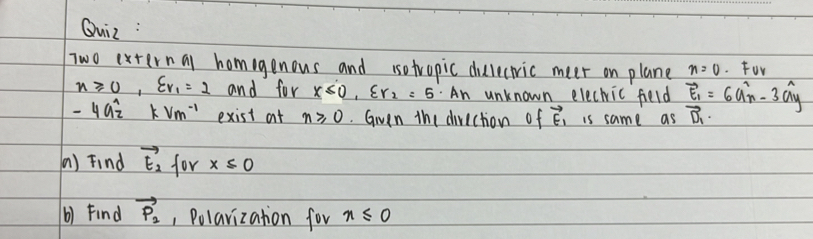 Quiz :
Two external homogenous and isotropic dielectric meet on plane x=0. For
x ≥ 0 , εr₁ = 2 and for x ≤ 0 , εr₂ = 5. An unknown electric field E⃗₁ = 6âx - 3ây
- 4âz kVm⁻¹ exist at x ≥ 0. Given the direction of E⃗₁ is same as D⃗₁.
a) Find E⃗₂ for x ≤ 0
b) Find P⃗₂ , Polarization for x ≤ 0